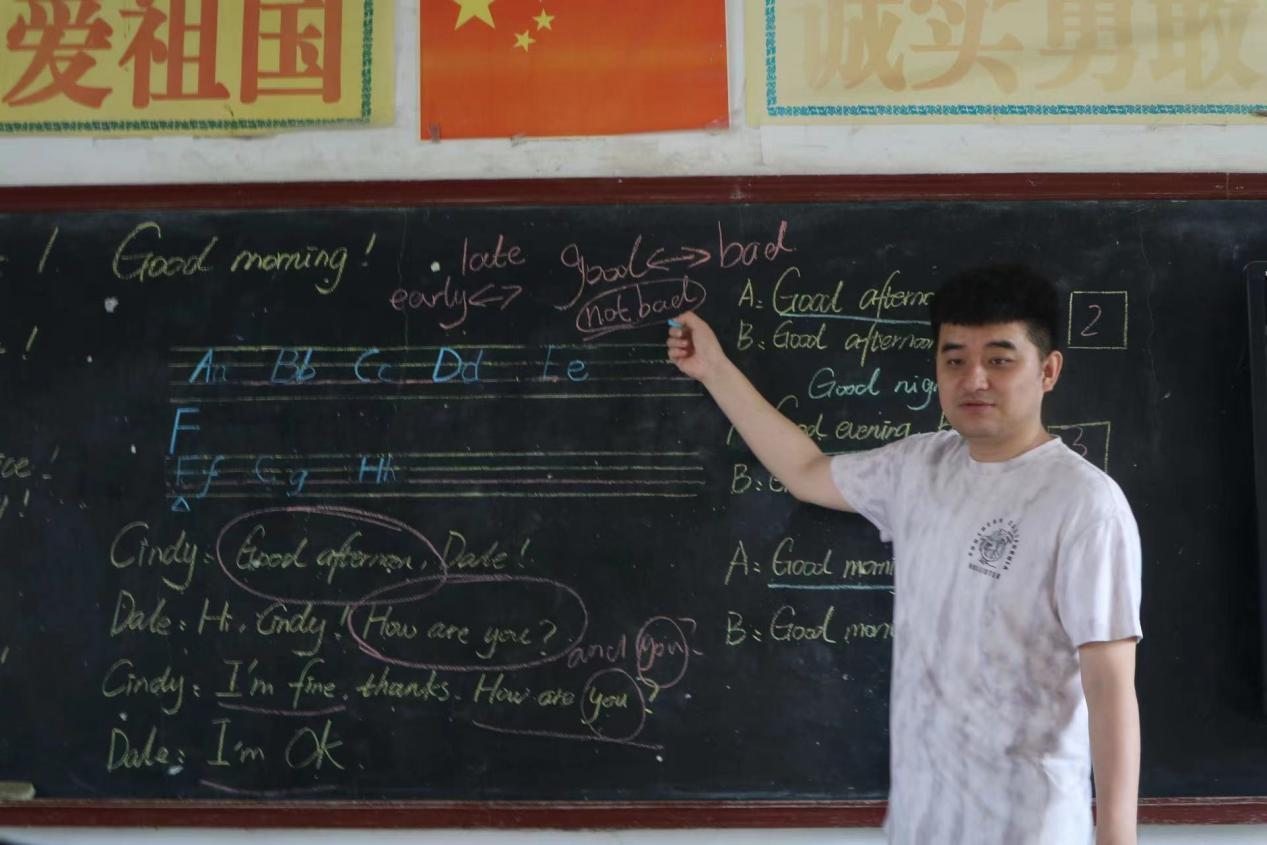 爱祖国
诚实勇敢
Good morning!
late
early ↔
good ↔ bad
not bad
Aa Bb Cc Dd Ee
F
Ef Gg Hh
Cindy: Good afternoon, Dale!
Dale: Hi, Cindy! How are you?
and you?
Cindy: I'm fine, thanks. How are you?
Dale: I'm Ok.
A: Good
2
B: Good
Good
evening
3
B:
A: Good
B: Good
HOLLISTER